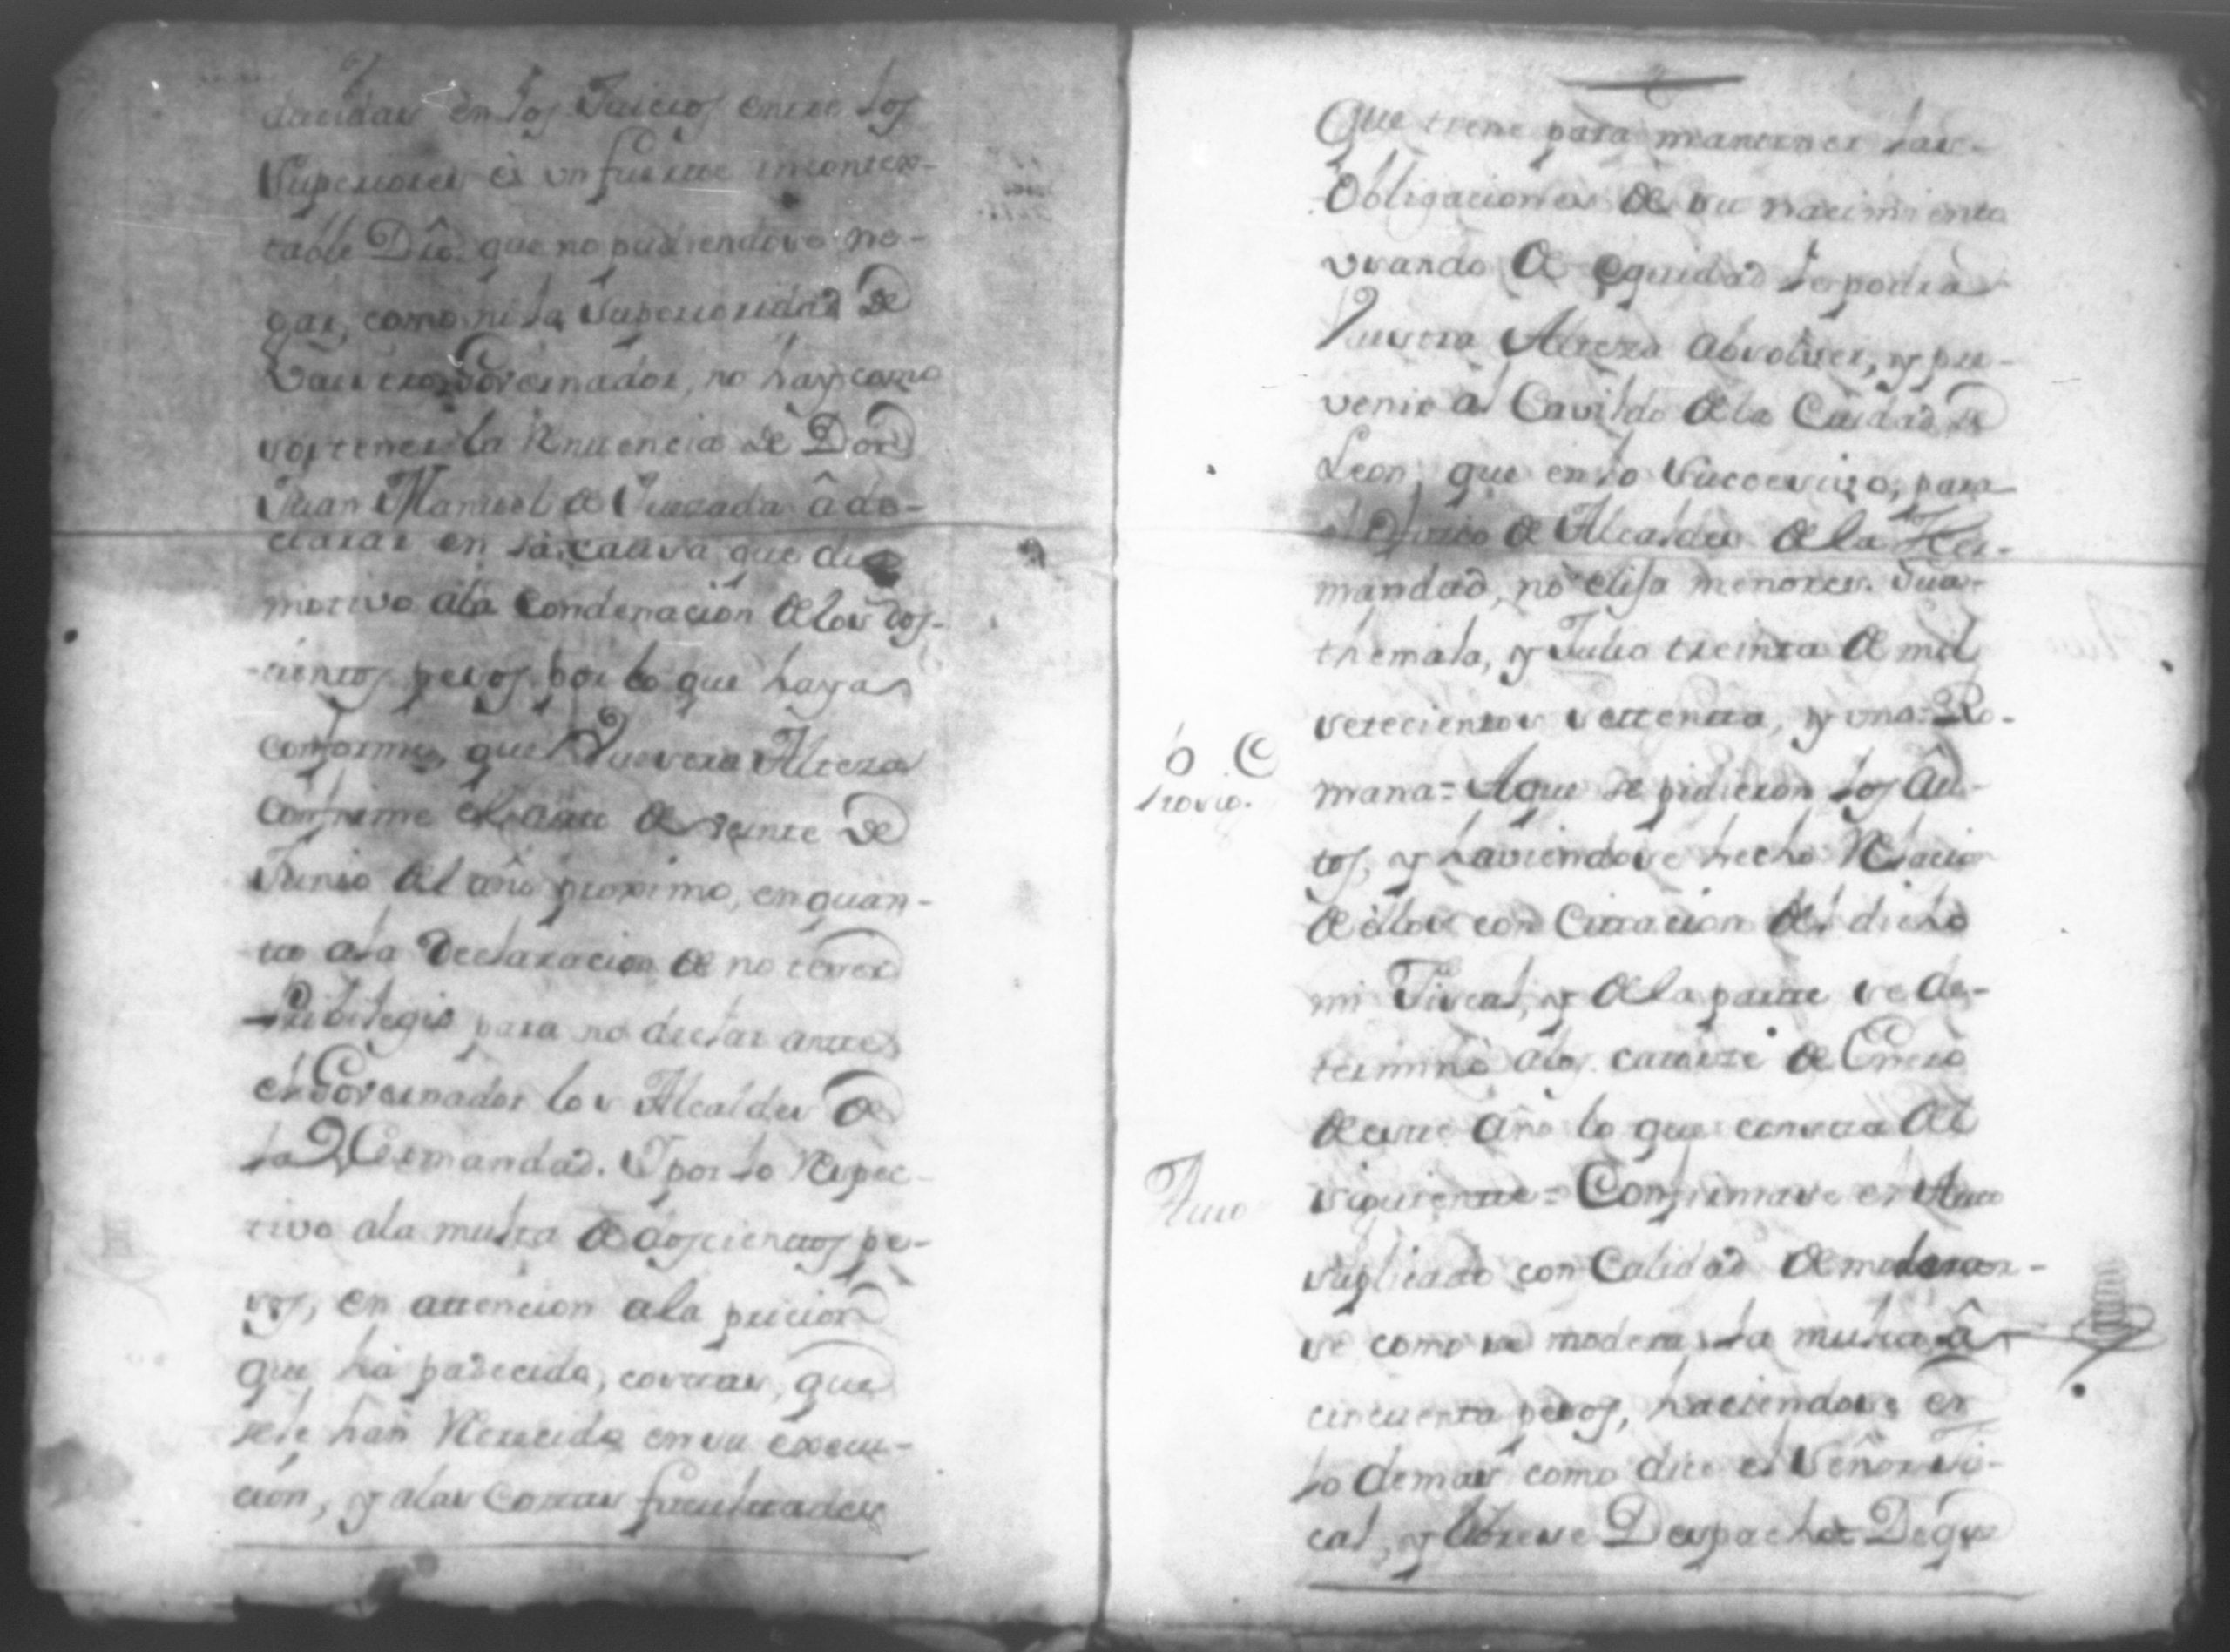 dacidas en los Juicios entre los
Superiores es un fuerte incontex-
table Dro. que no pudiendose ne-
gar, como ni la Superioridad de
Vuestro Governador, no hay como
sostener la Renuencia de Don
Juan Manuel de Quezada â de-
clarar en la causa que dio
motivo ala Condenacion de los dos-
cientos pesos por lo que haya
conforme, que Vuestra Alteza
confirme el auto de veinte de
Junio del año proximo, en quan-
to ala Declaracion de no tener
Pribilegio para no declar antes
el Governador los Alcaldes de
la Hermandad. Y por lo Respec-
tivo ala multa de doscientos pe-
sos, en attencion ala pricion
que há padecido, costas, que
sele han Recrecido en su execu-
cion, y alas Cortas facultades
Que tiene para mantener las
Obligaciones de su nacimiento
usando de equidad lo podrá
Vuestra Alteza absolver, y pre-
venir al Cavildo de la Ciudad de
Leon, que en lo Subcesivo, para
el Oficio de Alcaldes de la Her-
mandad, no elija menores. Gua-
themala, y Julio treinta de mil
setecientos settenta, y uno= Ro-
mana= Aque se pidieron los âu-
tos, y haviendose hecho Relacion
de ellos con Citacion del dicho
mi Fiscal, y de la parte se de-
terminó alos catorze de Enero
de este año lo que consta del
siguiente= Confirmase el Auto
suplicado con Calidad de moderar-
se como se modera la multa â
cincuenta pesos, haciendose en
lo demas como dice el Señor Fis-
cal, y librese Despacho= De que
Auto